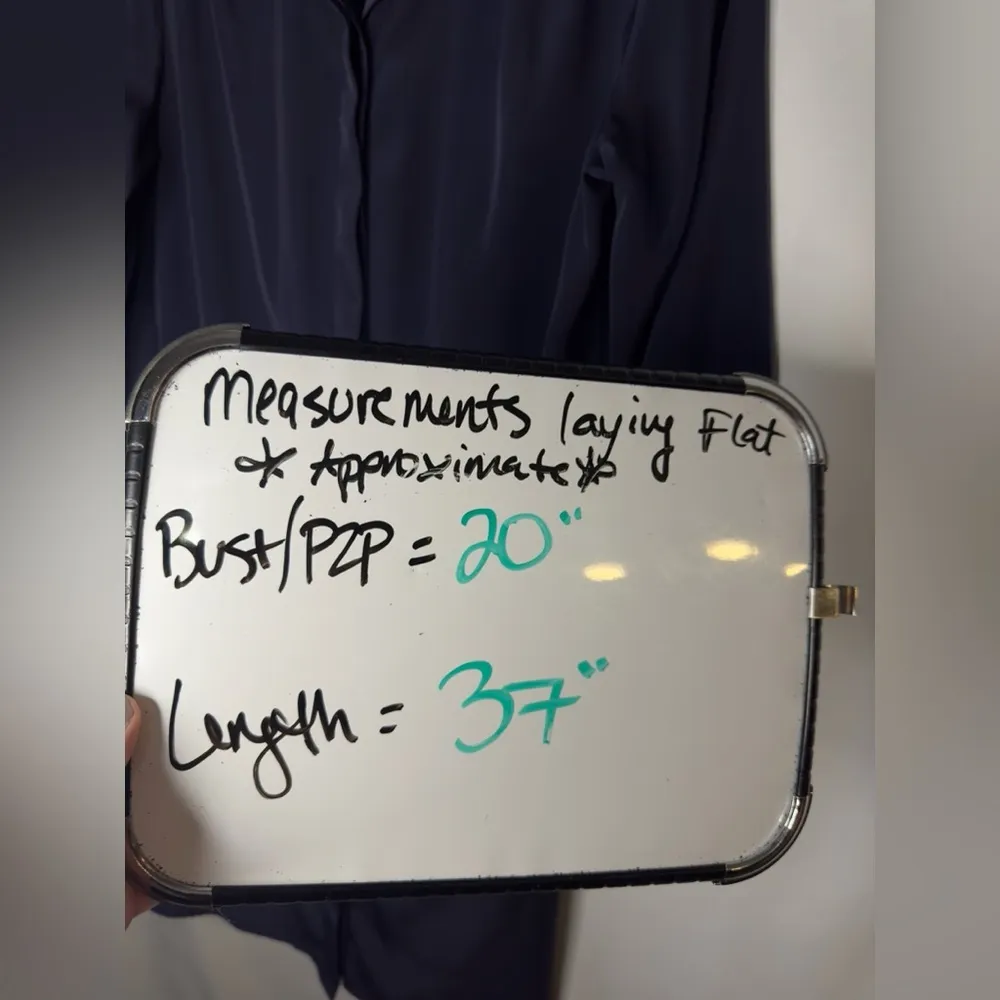 Measurements laying Flat
* Approximate *
Bust/P2P = 20"
Length = 37"